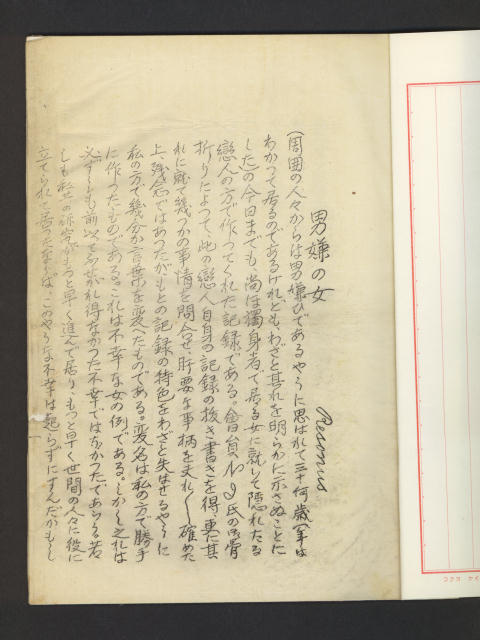 男嫌の女
Resonis
(周囲の人々からは男嫌ひであるやうに思はれて三十何歳(年は
わかつて居るのであるけれども、わざと其れを明らかに示さぬことに
した)の今日までも、尚ほ獨身者で居る女に就して隠れたる
戀人の方で作つてくれた記録である。會員 氏の骨
折りによつて、此の戀人自身の記録の抜き書きを得、更に其
れに就て幾つかの事情を問合せ、肝要な事柄を夫れ〱確めた
上、残念ではあつたがもとの記録の特色をわざと失はせるやうに
私の方で幾分か言葉を変へたものである。変名は私の方で勝手
に作つたものである。これは不幸な女の例である。しかし之れは
必ずしも前以て ぜがれ得なかつた不幸ではなかつたであらう。若
しも私共の研究がもつと早く進んで居り、もつと早く世間の人々に役に
立てられて居つたならば、このやうな不幸は起らずにすんだかもし
コクヨ ケイ